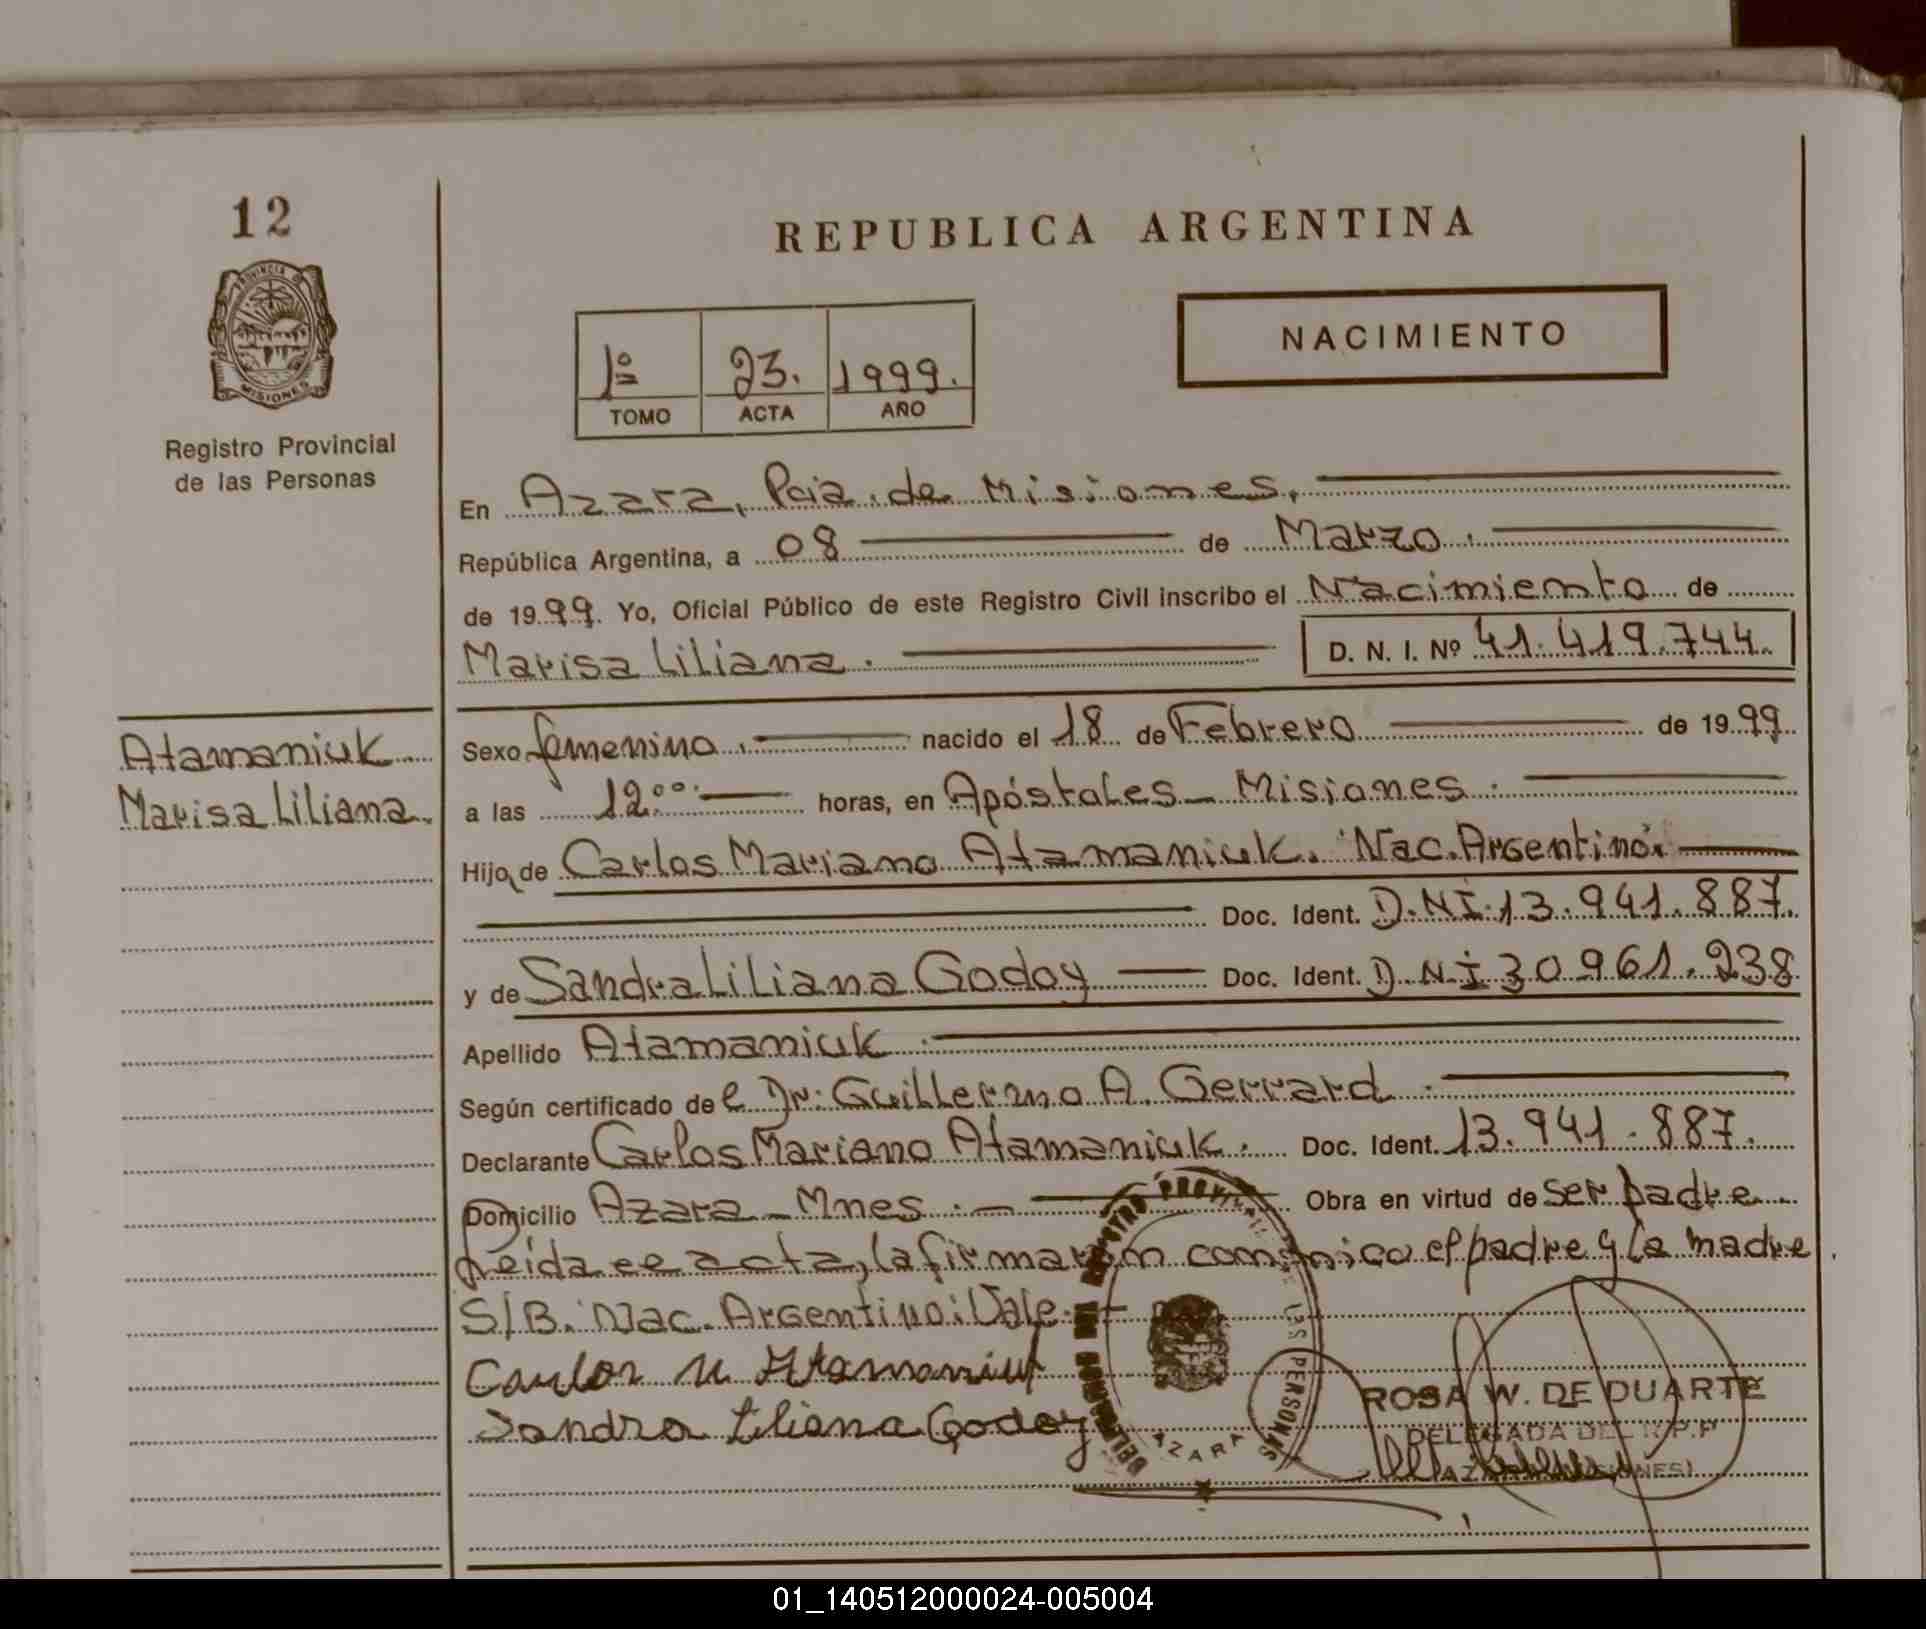 12
REPUBLICA ARGENTINA
NACIMIENTO
1º 23. 1999.
TOMO ACTA AÑO
Registro Provincial
de las Personas
En Azara, Pcia. de Misiones.
República Argentina, a 08 de Marzo.
de 1999. Yo, Oficial Público de este Registro Civil inscribo el Nacimiento de
Marisa Liliana. D. N. I. Nº 41.419.744.
Atamaniuk
Marisa Liliana.
Sexo femenino. nacido el 18 de Febrero de 1999
a las 12:00. horas, en Apóstoles - Misiones.
Hija de Carlos Mariano Atamaniuk. Nac. Argentino.
Doc. Ident. D.N.I. 13.941.887.
y de Sandra Liliana Godoy Doc. Ident. D.N.I 30961.238
Apellido Atamaniuk.
Según certificado del Dr: Guillermo A. Gerrard.
Declarante Carlos Mariano Atamaniuk. Doc. Ident. 13.941.887.
Domicilio Azara - Mnes. Obra en virtud de ser padre
leida ee acta, la firmaron conmico el padre y la madre.
S/B. Nac. Argentino: Vale.
Carlos M Atamaniuk
Sandra Liliana Godoy
AZARA
LAS PERSONAS
ROSA W. DE DUARTE
DELEGADA DEL R.P.P
01_140512000024-005004